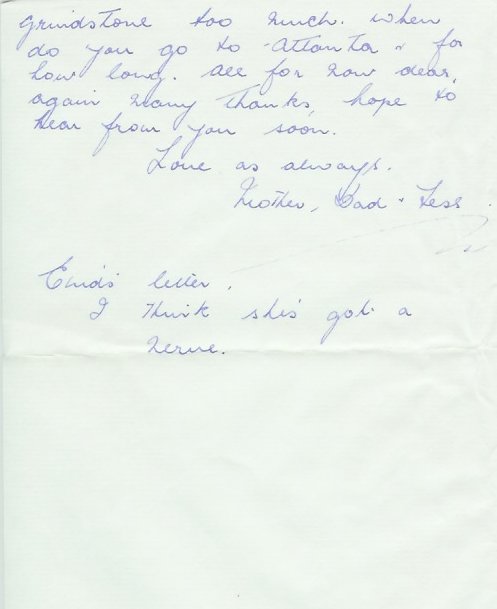 grindstone too much. When
do you go to Atlanta & for
how long. All for now dear,
again many thanks, hope to
hear from you soon.
Love as always.
Mother, Dad & Less
Enid's letter.
I think she's got a
nerve.